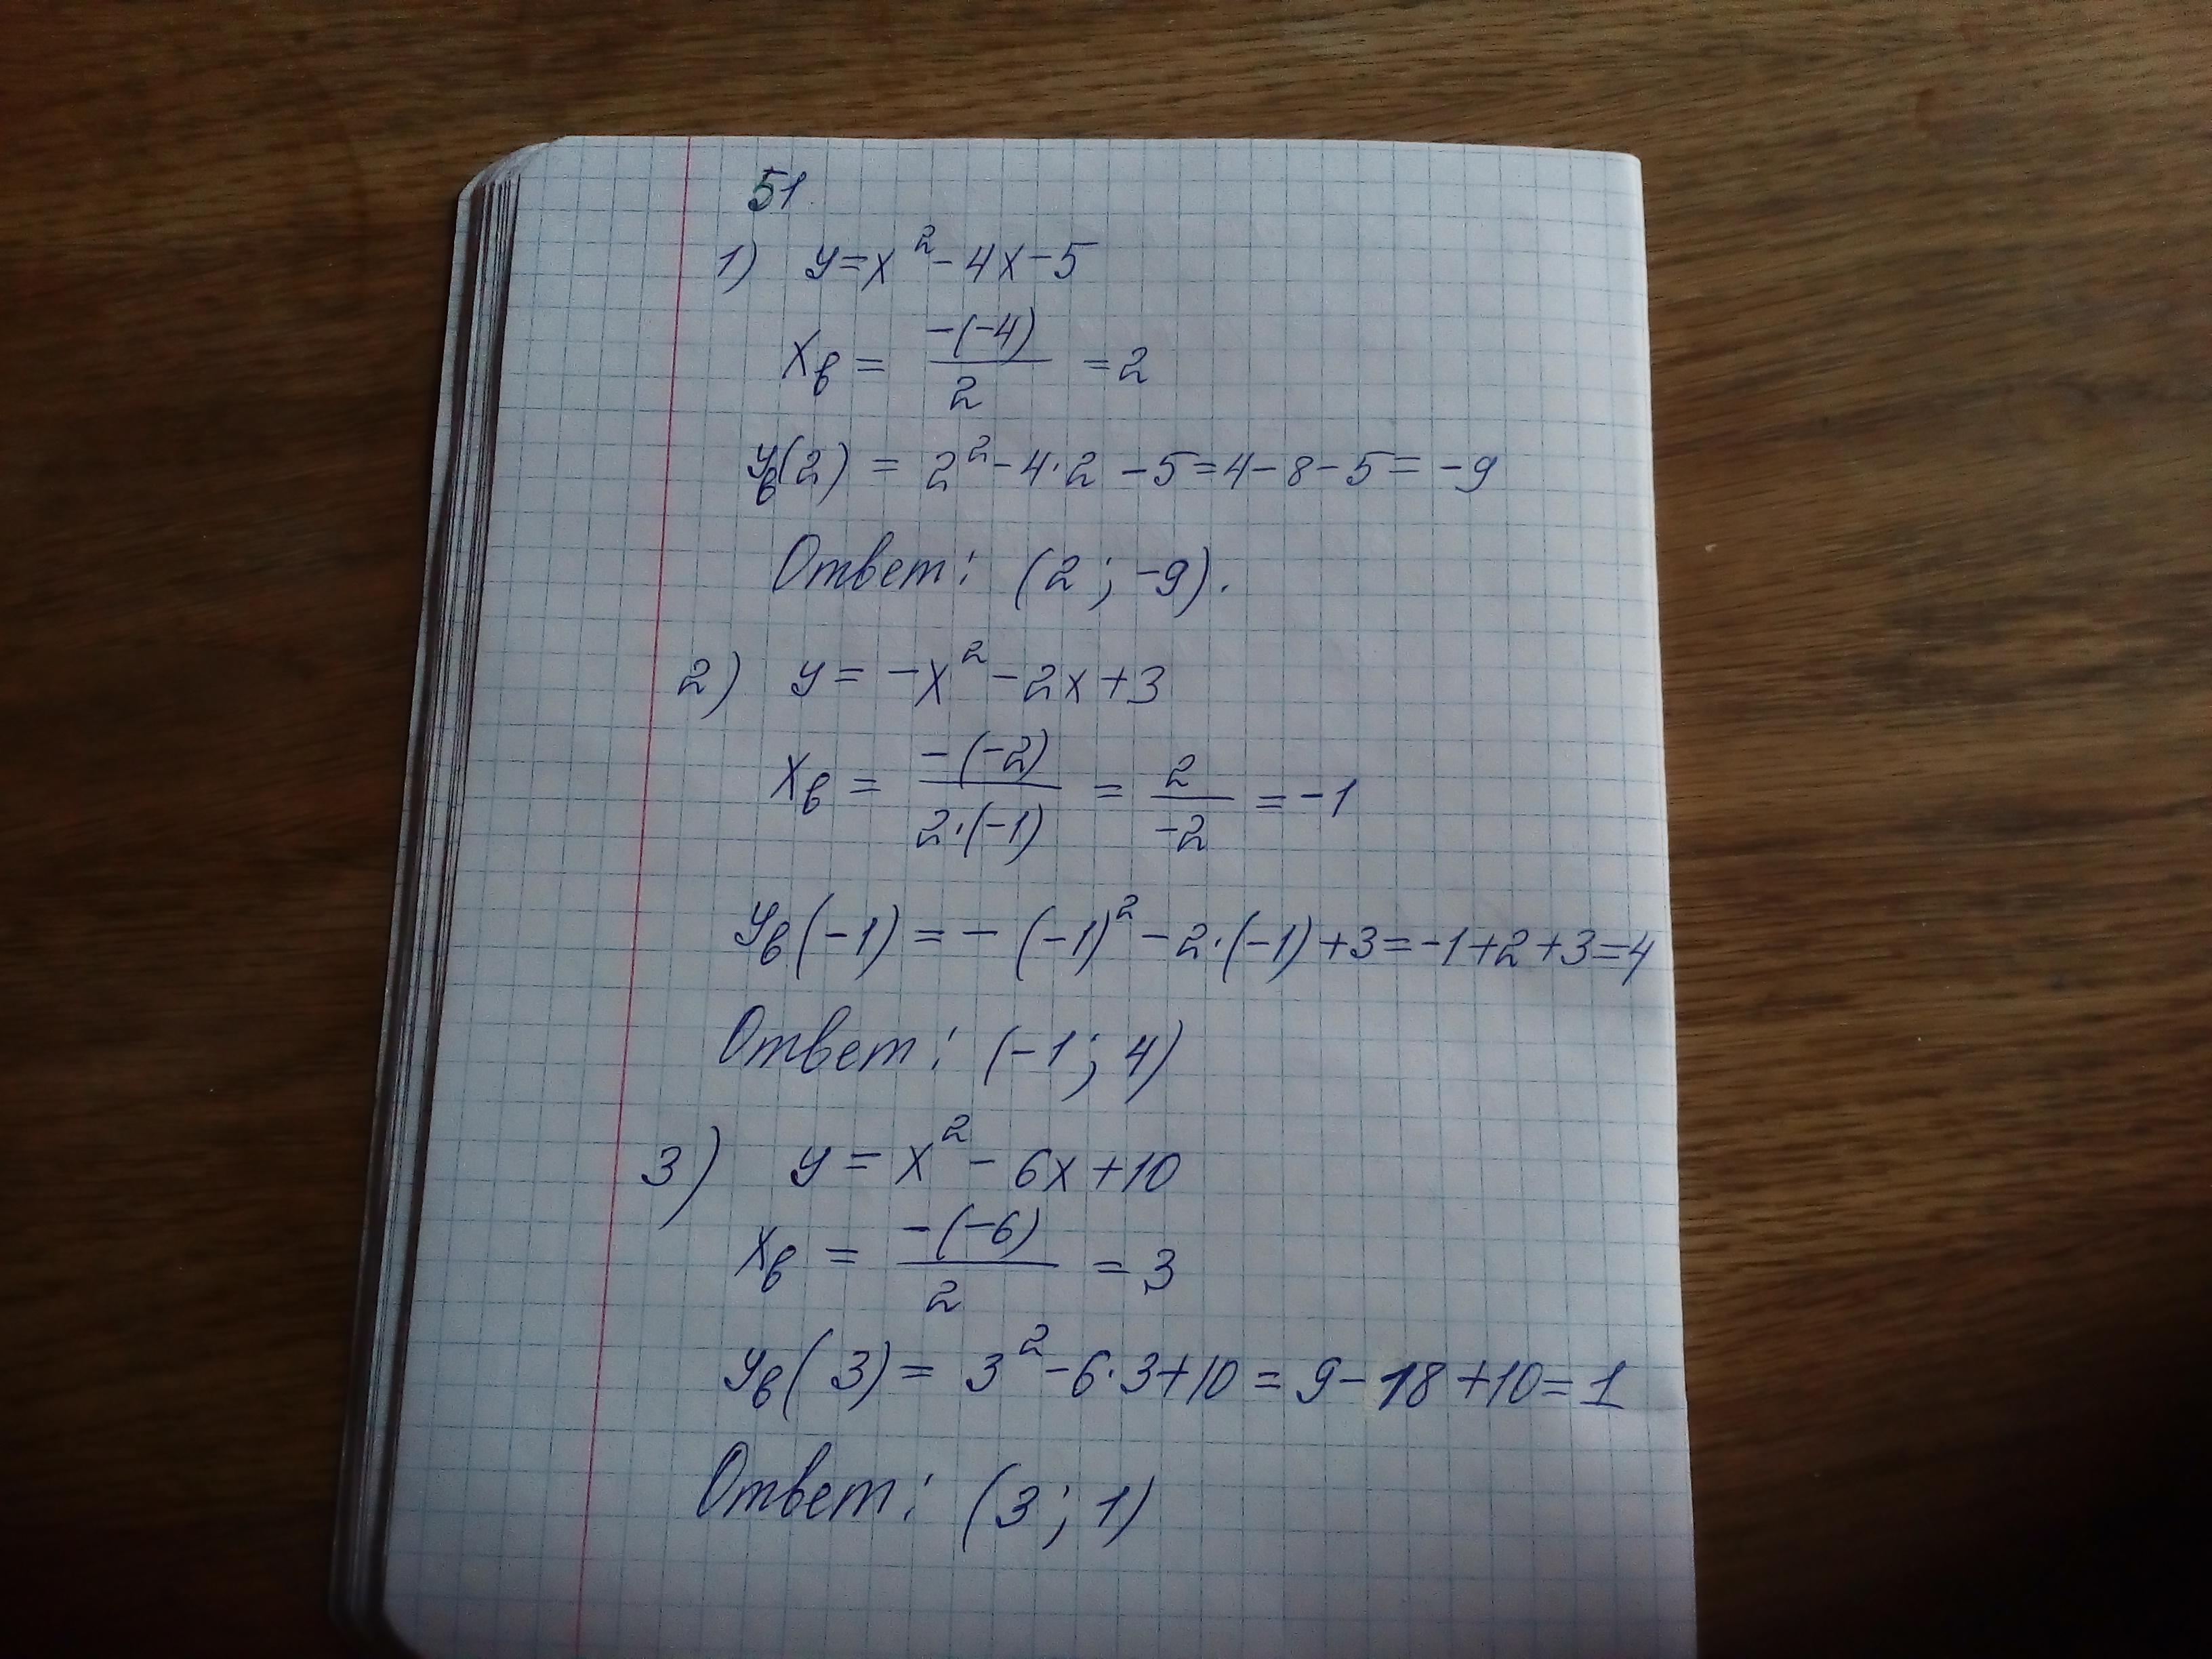 51.
1) y=x²-4x-5
xв = -(-4)/2 =2
yв(2) = 2²-4·2-5=4-8-5=-9
Ответ: (2; -9).
2) y= -x²-2x+3
xв = -(-2)/2·(-1) = 2/-2 =-1
yв(-1)=-(-1)²-2·(-1)+3=-1+2+3=4
Ответ: (-1; 4)
3) y = x²-6x+10
xв = -(-6)/2 =3
yв(3)= 3²-6·3+10=9-18+10=1
Ответ: (3; 1)